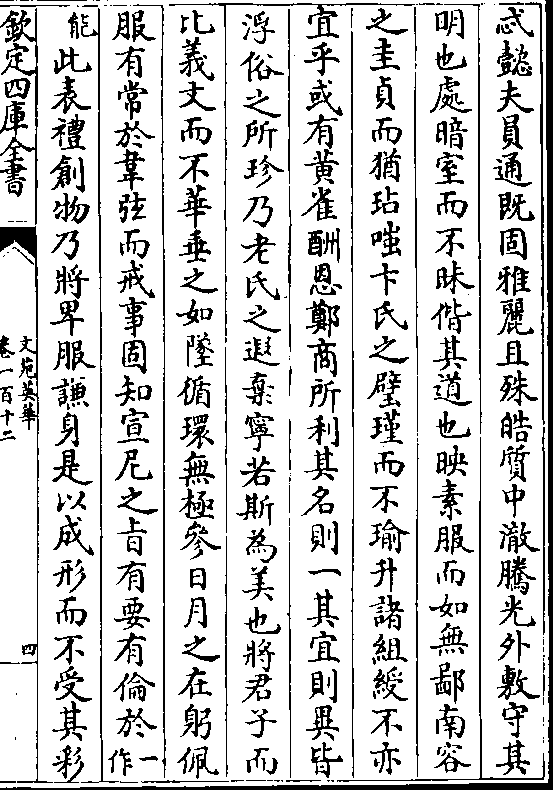 忒懿夫員通既固雅麗且殊皓質中澈騰光外敷守其
明也處暗室而不昧偕其道也映素服而如無鄙南容
之圭貞而猶玷嗤卞氏之璧瑾而不瑜升諸組綬不亦
宜乎或有黄雀酬恩鄭商所利其名則一其宜則異皆
浮俗之所珍乃老氏之遐棄寧若斯為美也將君子而
比義文而不華垂之如墜循環無極參日月之在躬佩
服有常於韋弦而戒事固知宣尼之旨有要有倫於一作
能此表禮創物乃將卑服謙身是以成形而不受其彩
欽定四庫全書
文苑英華
卷一百十二
四